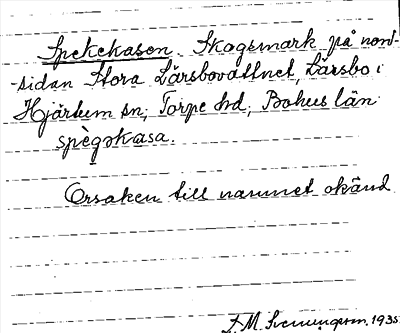 Spekekasen. Skogsmark på nord-
-sidan Stora Lärsbovattnet, Lärsbo i
Hjärtum sn, Torpe hd, Bohus län
spègəkasa.
Orsaken till namnet okänd
F. M. Svenungsson. 1935